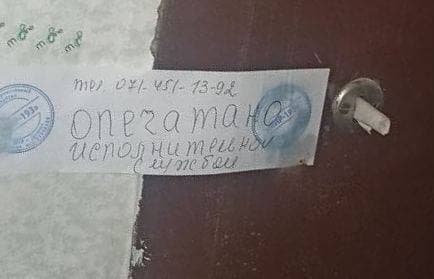 тел 071-451-13-92
опечатано
исполнительной
службой